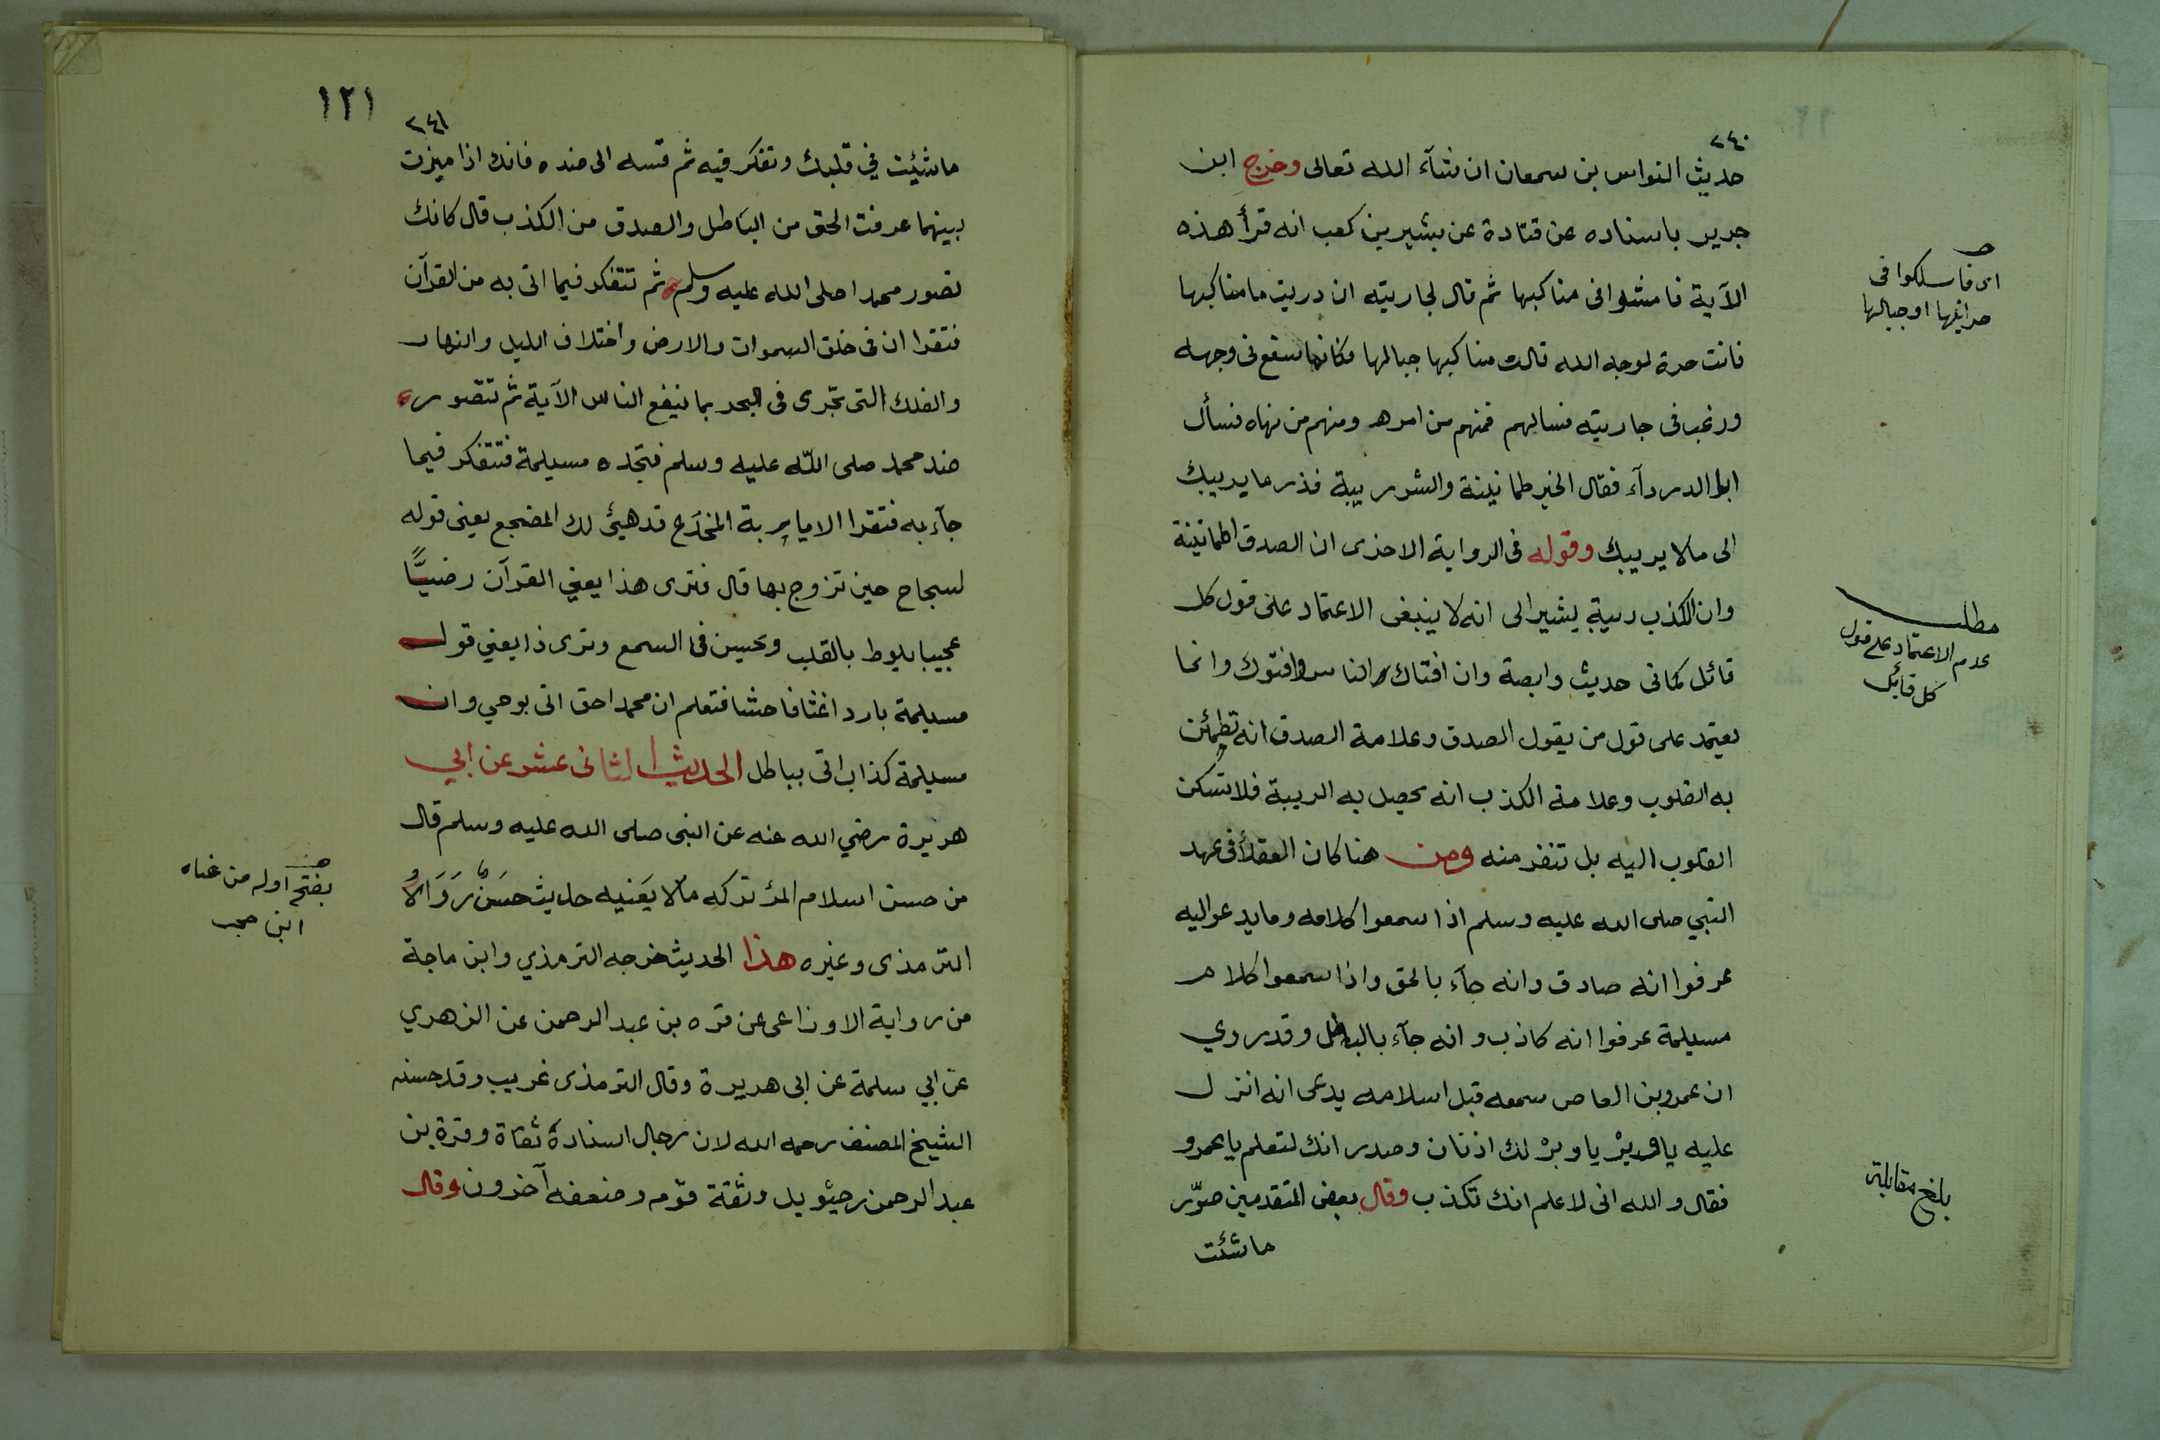 ٢٤٠
حديث النواس بن سمعان ان شآء الله تعالى وخرج ابن
جرير باسناده عن قتادة عن بشير بن كعب انه قرأ هذه
الآية فامشوا فى مناكبها ثم قال لجاريته ان دريت ما مناكبها
فانت حرة لوجه الله قالت مناكبها جبالها فكانما سفع فى وجهه
ورغب فى جاريته فسالهم فمنهم من امره ومنهم من نهاه فسأل
ابا الدردآء فقال الخير طمانينة والشر ريبة فذر ما يريبك
الى مالا يريبك وقوله فى الرواية الاخرى ان الصدق اطمانينة
وان الكذب ريبة يشير الى انه لا ينبغى الاعتماد على قول كل
قائل كما فى حديث وابصة وان افتاك الناس وافتوك وانما
يعتمد على قول من يقول الصدق وعلامة الصدق انه تطمئن
به القلوب وعلامة الكذب انه يحصل به الريبة فلا تسكن
القلوب اليه بل تنفر منه ومن هنا كان العقلأ فى عهد
النبي صلى الله عليه وسلم اذا سمعوا كلامه وما يدعوا اليه
عرفوا انه صادق وانه جآء بالحق واذا سمعوا كلام
مسيلمة عرفوا انه كاذب وانه جآء بالباطل وقد روي
ان عمرو بن العاص سمعه قبل اسلامه يدعى انه انزل
عليه يا وبر يا وبر لك اذنان وصدر انك لتعلم يا عمرو
فقال والله انى لا علم انك تكذب وقال بعض المتقدمين صوّر
ماشئت
اى فاسلكوا فى
اوجبالها
مطلب
عدم الاعتماد على قول
كل قائل
بلغ مقابلة
١٢١
٢٤١
ماشئت في قلبك وتفكر فيه ثم قسه الى ضده فانك اذا ميزت
بينهما عرفت الحق من الباطل والصدق من الكذب قال كانك
تصور محمدا صلى الله عليه وسلم ثم تتفكر فيما اتى به من القرآن
فتقرا ان فى خلق السموات والارض واختلاف الليل والنهار
والفلك التى تجرى فى البحر بما ينفع الناس الآية ثم تتصور
ضد محمد صلى الله عليه وسلم فتجده مسيلمة فتتفكر فيما
جآء به فتقرا الا يا ربة المخدع قد هيئ لك المضجع يعنى قوله
لسجاح حين تزوج بها قال فترى هذا يعني القرآن رضيًّا
عجيبا يلوط بالقلب ويحسن فى السمع وترى ذا يعني قول
مسيلمة باردا غثا فاحشا فتعلم ان محمدا حق اتى بوحي وان
مسيلمة كذاب اتى بباطل الحديث الثانى عشر عن ابي
هريرة رضي الله عنه عن النبى صلى الله عليه وسلم قال
من حسن اسلام المرء تركه مالا يعنيه حديث حسن رواه
الترمذى وغيره هذا الحديث خرجه الترمذي وابن ماجة
من رواية الاوزاعى عن قره بن عبد الرحمن عن الزهري
عن ابي سلمة عن ابى هريرة وقال الترمذى غريب وقد حسنه
الشيخ المصنف رحمه الله لان رجال اسناده ثقاة وقرة بن
عبد الرحمن بن حيويل وثقة قوم وضعفه آخرون وقال
بفتح اوله من عناه
ابن حجر